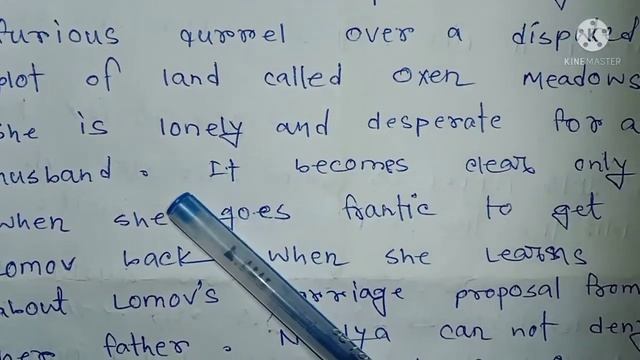 furious qurrel over a disputed
plot of land called Oxen Meadows
she is lonely and desperate for a
husband. It becomes clear only
when she goes frantic to get
Lomov back when she learns
about Lomov's proposal from
her father. can not
KINEMASTER